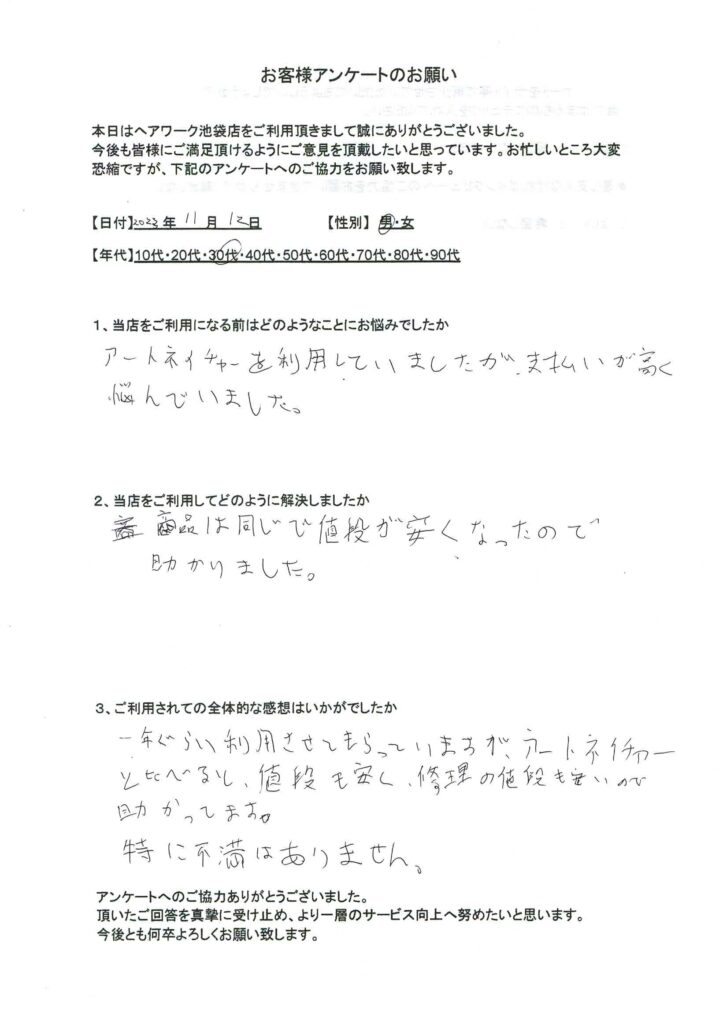 お客様アンケートのお願い
本日はヘアワーク池袋店をご利用頂きまして誠にありがとうございました。
今後も皆様にご満足頂けるようにご意見を頂戴したいと思っています。お忙しいところ大変
恐縮ですが、下記のアンケートへのご協力をお願い致します。
【日付】2023年 11月 12日 【性別】 男・女
【年代】10代・20代・30代・40代・50代・60代・70代・80代・90代
1、当店をご利用になる前はどのようなことにお悩みでしたか
アートネイチャーを利用していましたが、支払いが高く
悩んでいました。
2、当店をご利用してどのように解決しましたか
商品は同じで値段が安くなったので
助かりました。
3、ご利用されての全体的な感想はいかがでしたか
一年ぐらい利用させてもらっていますが、アートネイチャー
と比べると、値段も安く、修理の値段も安いので
助かってます。
特に不満はありません。
アンケートへのご協力ありがとうございました。
頂いたご回答を真摯に受け止め、より一層のサービス向上へ努めたいと思います。
今後とも何卒よろしくお願い致します。